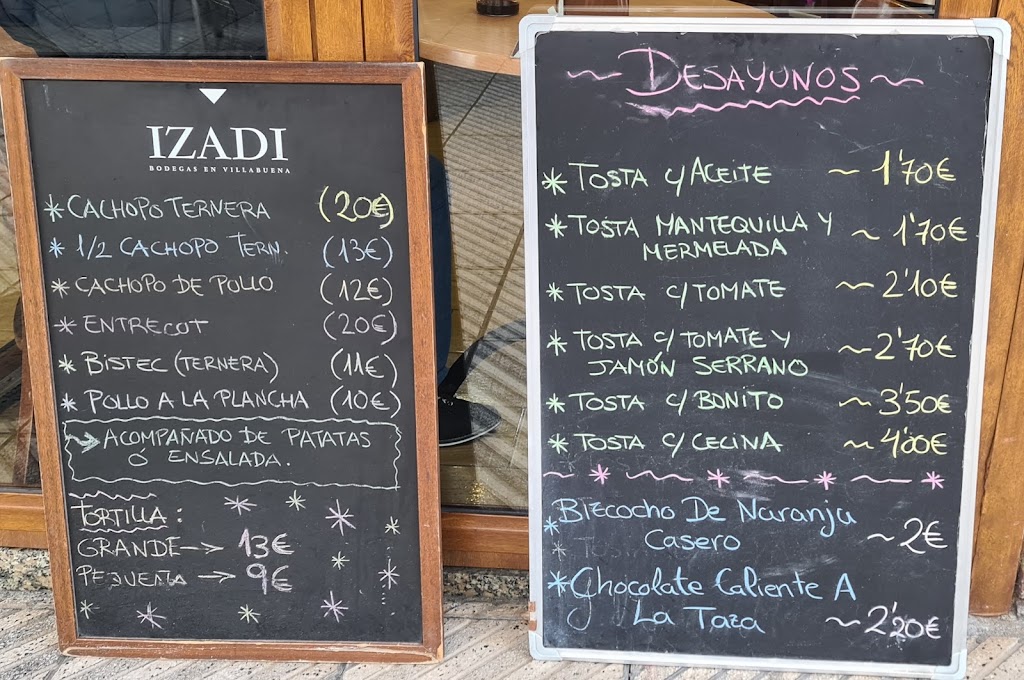 IZADI
BODEGAS EN VILLABUENA
* CACHOPO TERNERA (20€)
* 1/2 CACHOPO TERN. (13€)
* CACHOPO DE POLLO (12€)
* ENTRECOT (20€)
* BISTEC (TERNERA) (11€)
* POLLO A LA PLANCHA (10€)
→ ACOMPAÑADO DE PATATAS
Ó ENSALADA.
TORTILLA:
GRANDE → 13€
PEQUEÑA → 9€
~ DESAYUNOS ~
* TOSTA C/ ACEITE ~ 1'70€
* TOSTA MANTEQUILLA Y
MERMELADA ~ 1'70€
* TOSTA C/ TOMATE ~ 2'10€
* TOSTA C/ TOMATE Y
JAMÓN SERRANO ~ 2'70€
* TOSTA C/ BONITO ~ 3'50€
* TOSTA C/ CECINA ~ 4'00€
* Bizcocho De Naranja
Casero ~ 2€
* Chocolate Caliente A
La Taza ~ 2'20€